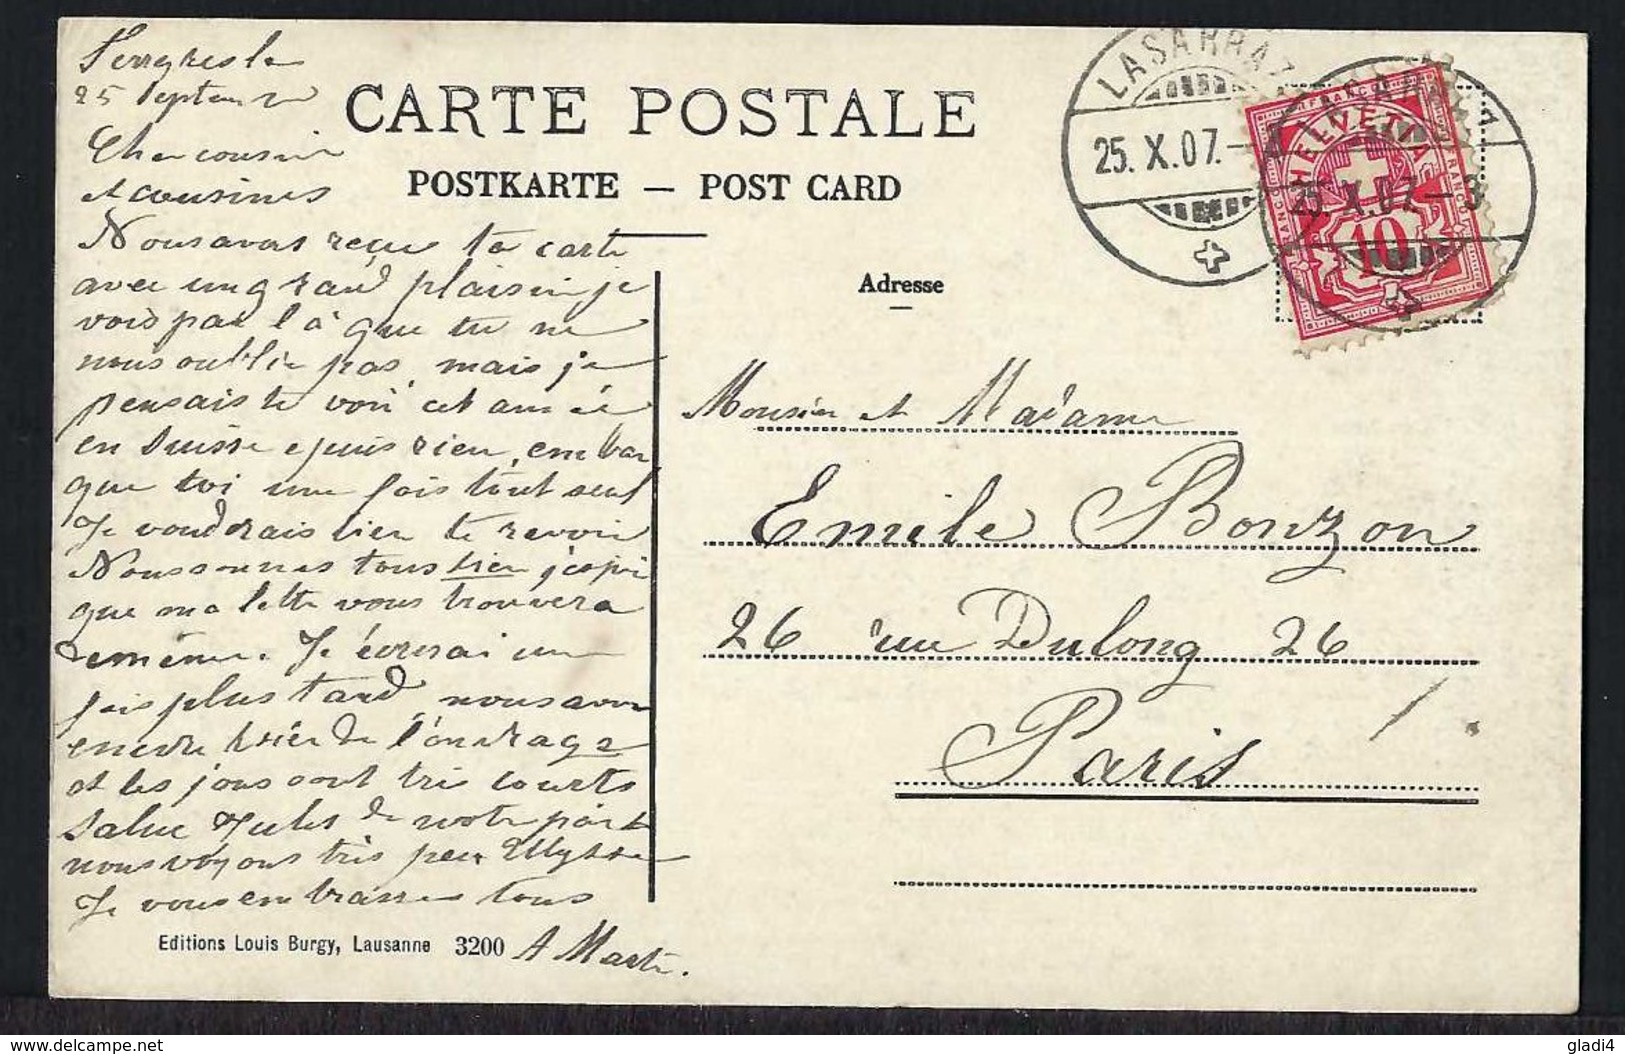 Ferreyres le
25 Septembre
Cher cousin
et cousines
Nous avons reçu ta carte
avec un grand plaisir je
vois par là que tu ne
nous oublie pas, mais je
pensais te voir cet année
en Suisse
que toi une fois tout seul
Je voudrais bien te revoir
Nous sommes tous bien j'éspér
que ma lettre vous trouvera
de même. Je écrirai une
fois plus tard, nous avons
encore bien de l'ouvrage
et les jours sont très courts
Salue Jules de notre part
nous voyons très peu Ulysse
Je vous embrasse tous
A Marti.
CARTE POSTALE
POSTKARTE — POST CARD
Adresse
Monsieur et Madame
Emile Bonzon
26 rue Dulong 26
Paris
Editions Louis Burgy, Lausanne 3200
LASARRAZ
25. X. 07.
LASARRAZ
25. X. 07.–3
HELVETIA
FRANCO
10
delcampe.net
gladi4